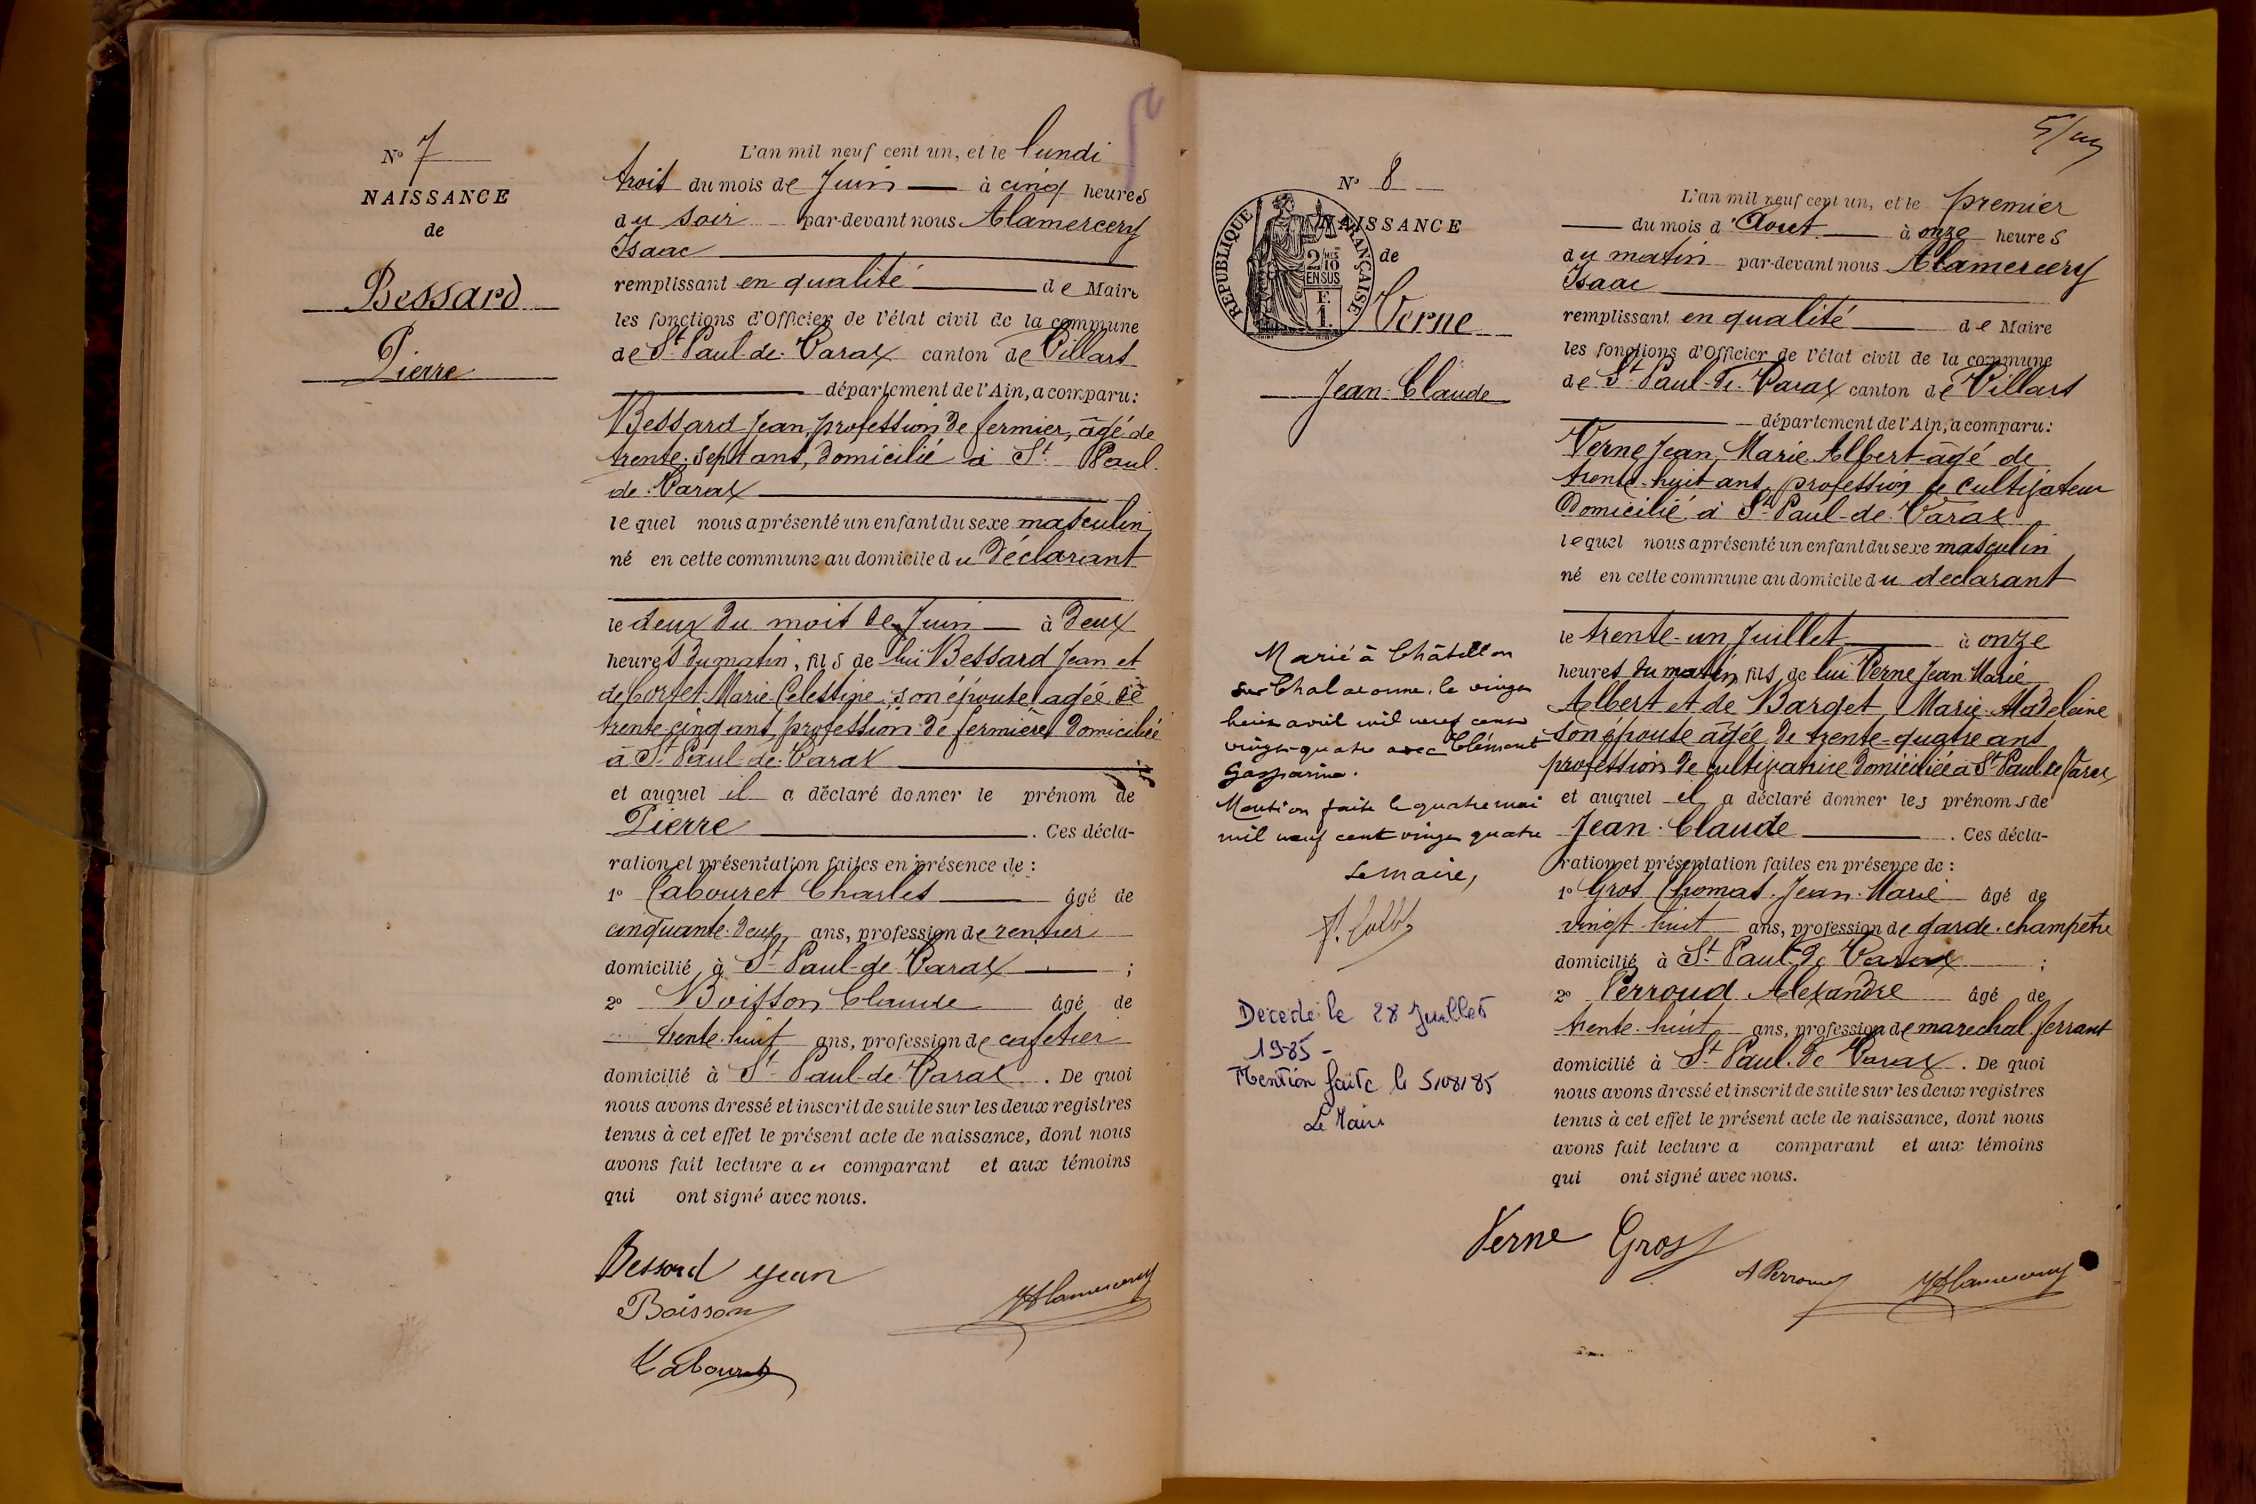 N° 7
NAISSANCE
de
Bessard
Pierre
L'an mil neuf cent un, et le lundi
trois du mois de Juin à cinq heures
du soir par-devant nous Alamercery
Isaac
remplissant en qualité de Maire
les fonctions d'Officier de l'état civil de la commune
de St Paul-de-Varax canton de Villars
département de l'Ain, a comparu:
Bessard Jean, profession de fermier, âgé de
trente-sept ans, domicilié à St Paul-
de-Varax
lequel nous a présenté un enfant du sexe masculin
né en cette commune au domicile du Déclarant
le deux du mois de Juin à deux
heures du matin, fils de lui Bessard Jean et
de Marie Celestine son épouse agée de
trente cinq ans, profession de fermière domiciliée
à St Paul-de-Varax
et auquel il a déclaré donner le prénom de
Pierre. Ces décla-
ration et présentation faites en présence de:
1° Cabouret Charles âgé de
cinquante-deux ans, profession de rentier
domicilié à St Paul-de-Varax ;
2° Boisson Claude âgé de
trente-huit ans, profession de cafetier
domicilié à St Paul-de-Varax. De quoi
nous avons dressé et inscrit de suite sur les deux registres
tenus à cet effet le présent acte de naissance, dont nous
avons fait lecture au comparant et aux témoins
qui ont signé avec nous.
Bessard Jean
Boisson
Alamercery
Cabouret
N° 8
NAISSANCE
de
REPUBLIQUE FRANÇAISE
2/10 EN SUS
F.
1.
Verne
Jean-Claude
Marié à Châtillon
sur Chalaronne, le vingt
huit avril mil neuf cent
vingt-quatre avec Clément
Gasparine.
Mention faite le quatre mai
mil neuf cent vingt quatre
Le maire,
Décédé le 28 Juillet
1985 -
Mention faite le 5/08/85
Le Maire
L'an mil neuf cent un, et le premier
du mois d'Aout à onze heures
du matin par-devant nous Alamercery
Isaac
remplissant en qualité de Maire
les fonctions d'Officier de l'état civil de la commune
de St Paul-de-Varax canton de Villars
département de l'Ain, a comparu:
Verne Jean Marie Albert âgé de
trente-huit ans, profession de cultivateur
Domicilié à St Paul-de-Varax
lequel nous a présenté un enfant du sexe masculin
né en cette commune au domicile du déclarant
le trente-un Juillet à onze
heures du matin, fils de lui Verne Jean Marie
Albert et de Barget Marie-Madeleine
son épouse âgée de trente-quatre ans
profession de cultivatrice domiciliée à St Paul de Varax
et auquel il a déclaré donner les prénoms de
Jean-Claude. Ces décla-
ration et présentation faites en présence de:
1° Gros Thomas Jean-Marie âgé de
vingt-huit ans, profession de garde-champêtre
domicilié à St Paul de Varax ;
2° Perroud Alexandre âgé de
trente-huit ans, profession de marechal ferrant
domicilié à St Paul de Varax. De quoi
nous avons dressé et inscrit de suite sur les deux registres
tenus à cet effet le présent acte de naissance, dont nous
avons fait lecture a comparant et aux témoins
qui ont signé avec nous.
Verne Gros
A Perroud Alamercery